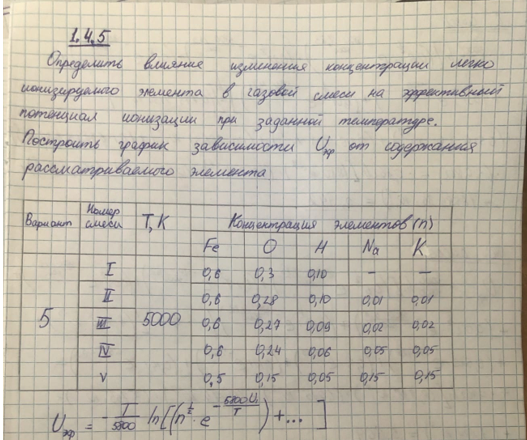 1.4.5
Определить влияние изменения концентрации легко
ионизируемого элемента в газовой смеси на эффективный
потенциал ионизации при заданной температуре.
Построить график зависимости Uэф от содержания
рассматриваемого элемента
Вариант Номер смеси T, K Концентрация элементов (n)
Fe O H Na K
I 0,6 0,3 0,10 — —
II 0,6 0,28 0,10 0,01 0,01
5 III 5000 0,6 0,27 0,09 0,02 0,02
IV 0,6 0,24 0,06 0,05 0,05
V 0,5 0,15 0,05 0,15 0,15
Uэф = - T/5800 ln[(n^½ · e^(-5800Ui/T)) + ... ]